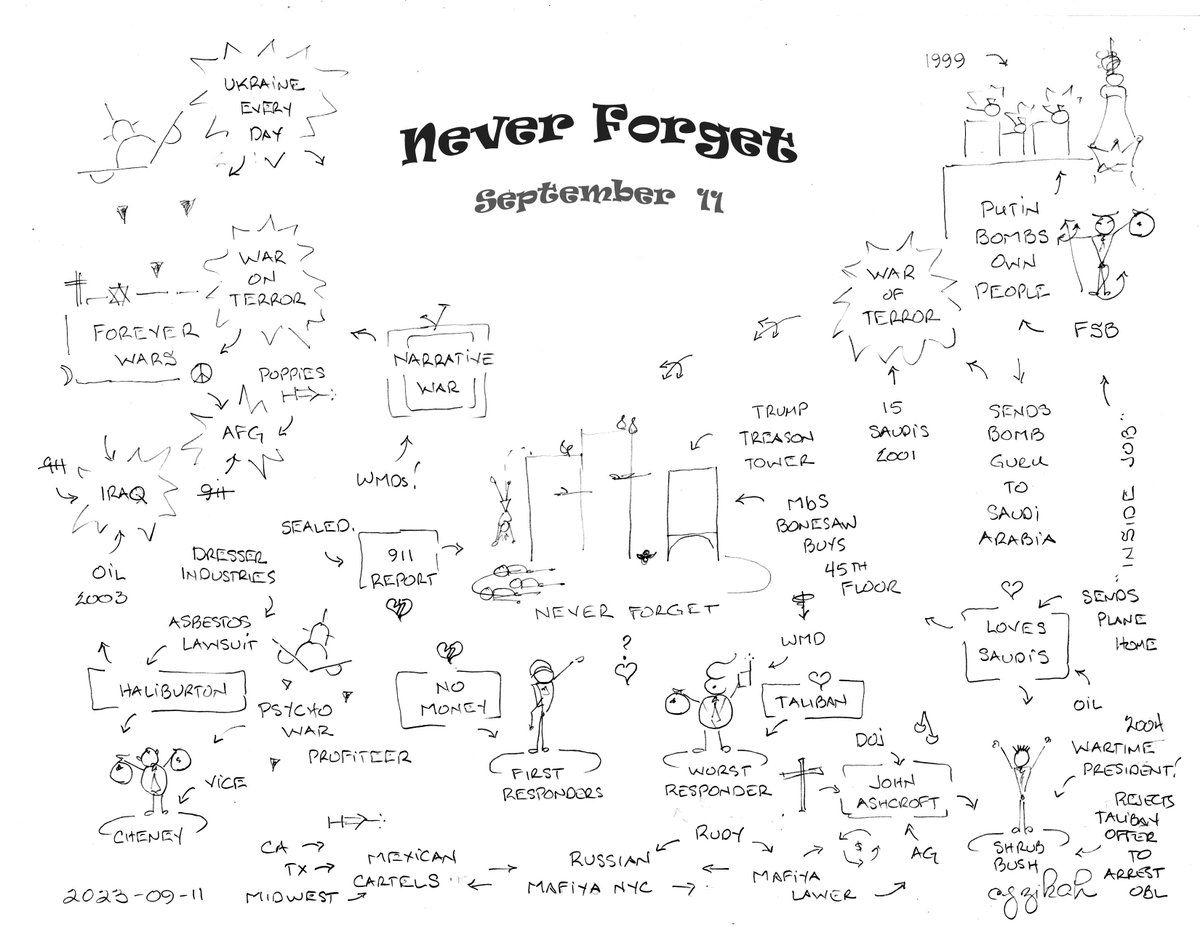 Never Forget
September 11
UKRAINE
EVERY
DAY
1999
PUTIN
BOMBS
OWN
PEOPLE
FSB
WAR
ON
TERROR
WAR
OF
TERROR
FOREVER
WARS
POPPIES
AFG
911
IRAQ
911
OIL
2003
NARRATIVE
WAR
WMDs!
TRUMP
TREASON
TOWER
15
SAUDIS
2001
SENDS
BOMB
GURU
TO
SAUDI
ARABIA
"INSIDE JOB"
MbS
BONESAW
BUYS
45TH
FLOOR
SEALED.
911
REPORT
NEVER FORGET
DRESSER
INDUSTRIES
ASBESTOS
LAWSUIT
HALIBURTON
PSYCHO
WAR
PROFITEER
VICE
CHENEY
NO
MONEY
FIRST
RESPONDERS
?
WMD
TALIBAN
WORST
RESPONDER
LOVES
SAUDIS
SENDS
PLANE
HOME
OIL
DOJ
JOHN
ASHCROFT
AG
2004
WARTIME
PRESIDENT!
REJECTS
TALIBAN
OFFER
TO
ARREST
OBL
SHRUB
BUSH
CA
TX
MIDWEST
MEXICAN
CARTELS
RUSSIAN
MAFIYA NYC
RUDY
$
MAFIYA
LAWER
2023-09-11